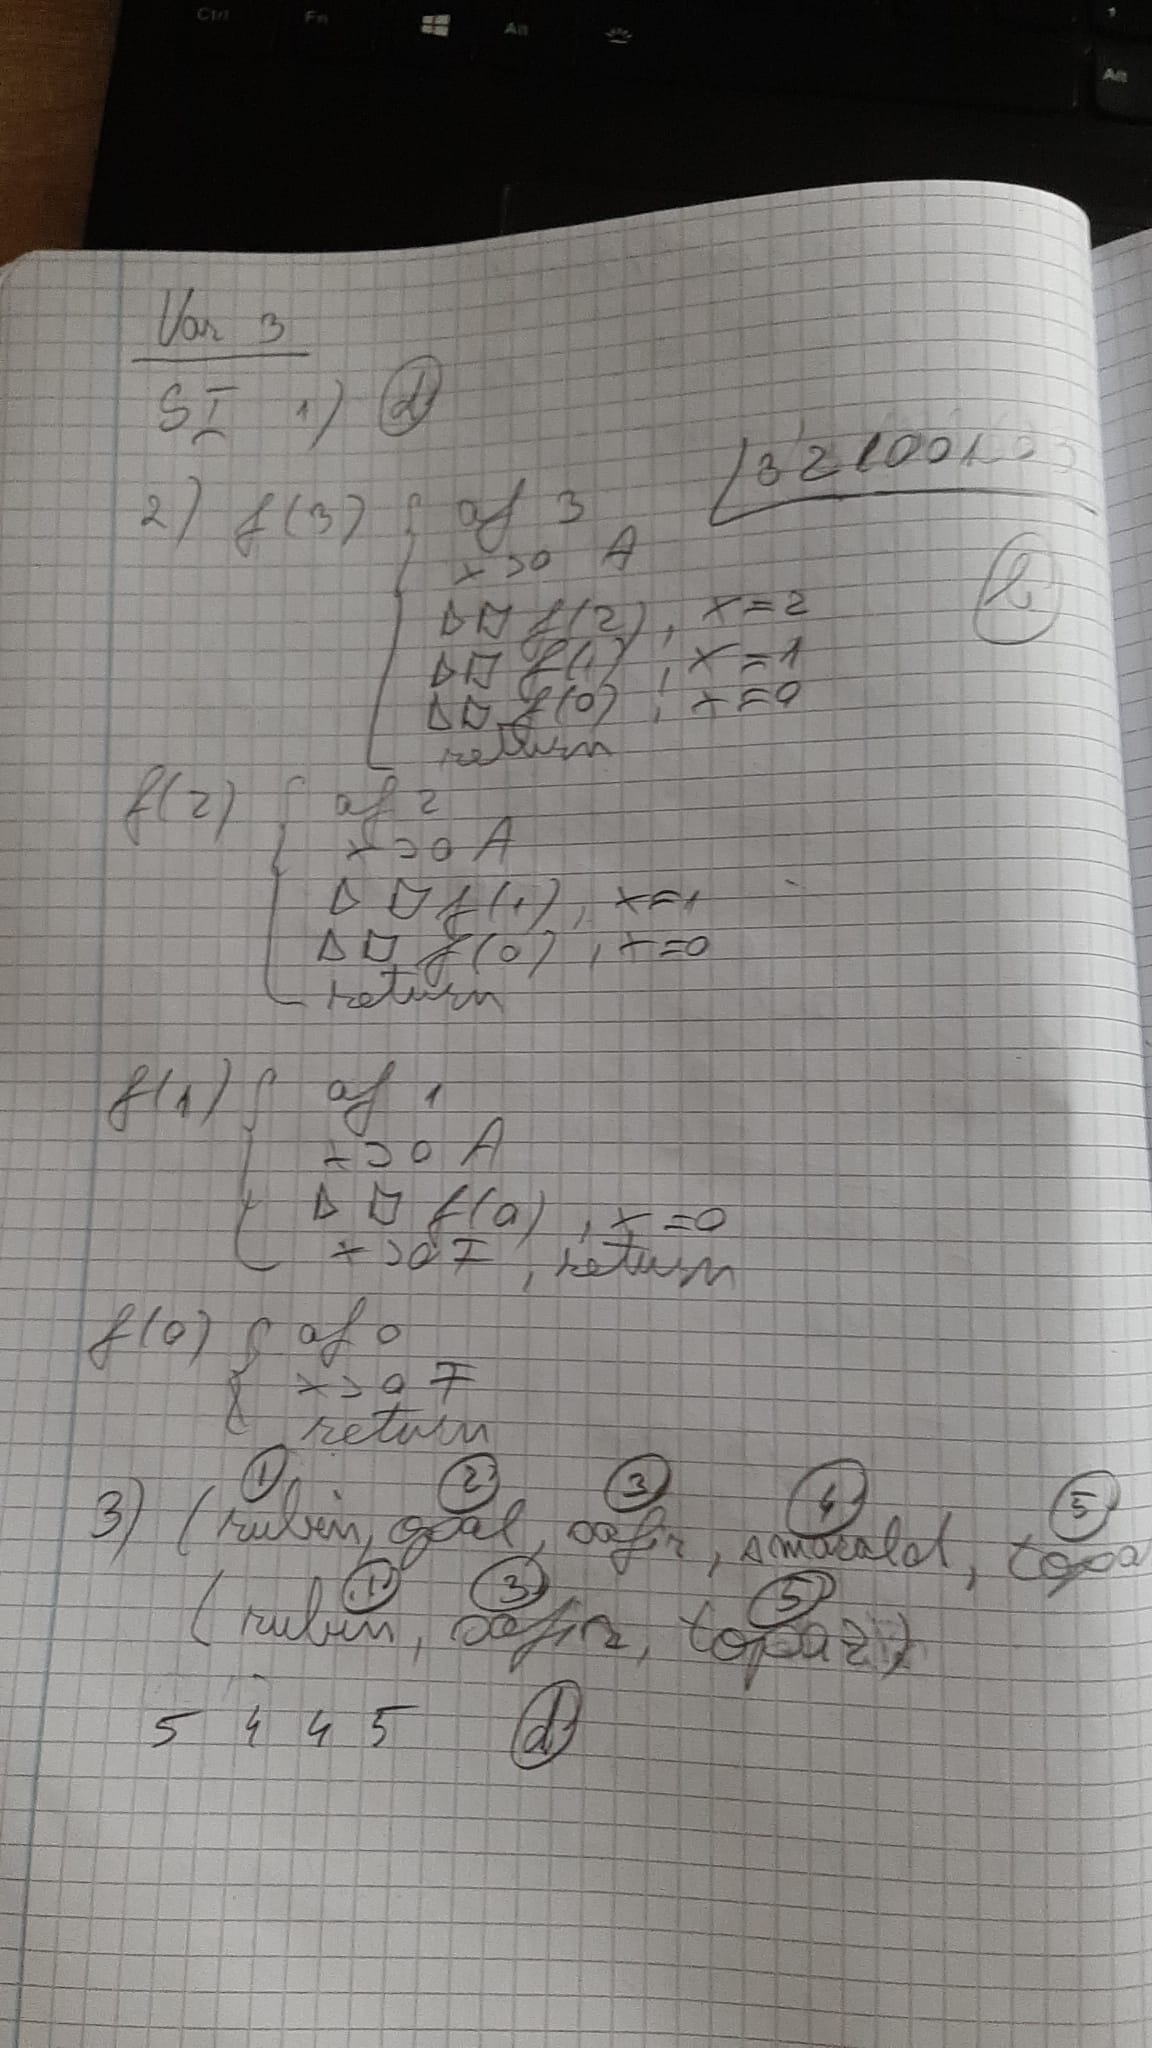 Ctrl Fn Alt Alt
Var 3
SI 1) d
2) f(3) { af 3
3 2 1 0 0 1
x>0 A
f(2), x=2
f(1), x=1
f(0), x=0
return
f(2) { af 2
x>0 A
f(1), x=1
f(0), x=0
return
f(1) { af 1
x>0 A
f(0), x=0
x>0 F, return
f(0) { af 0
x>0 F
return
1 2 3 4 5
3) (rubin, opal, safir, smarald, topa
1 3 5
(rubin, safir, topaz)
5 4 4 5 d